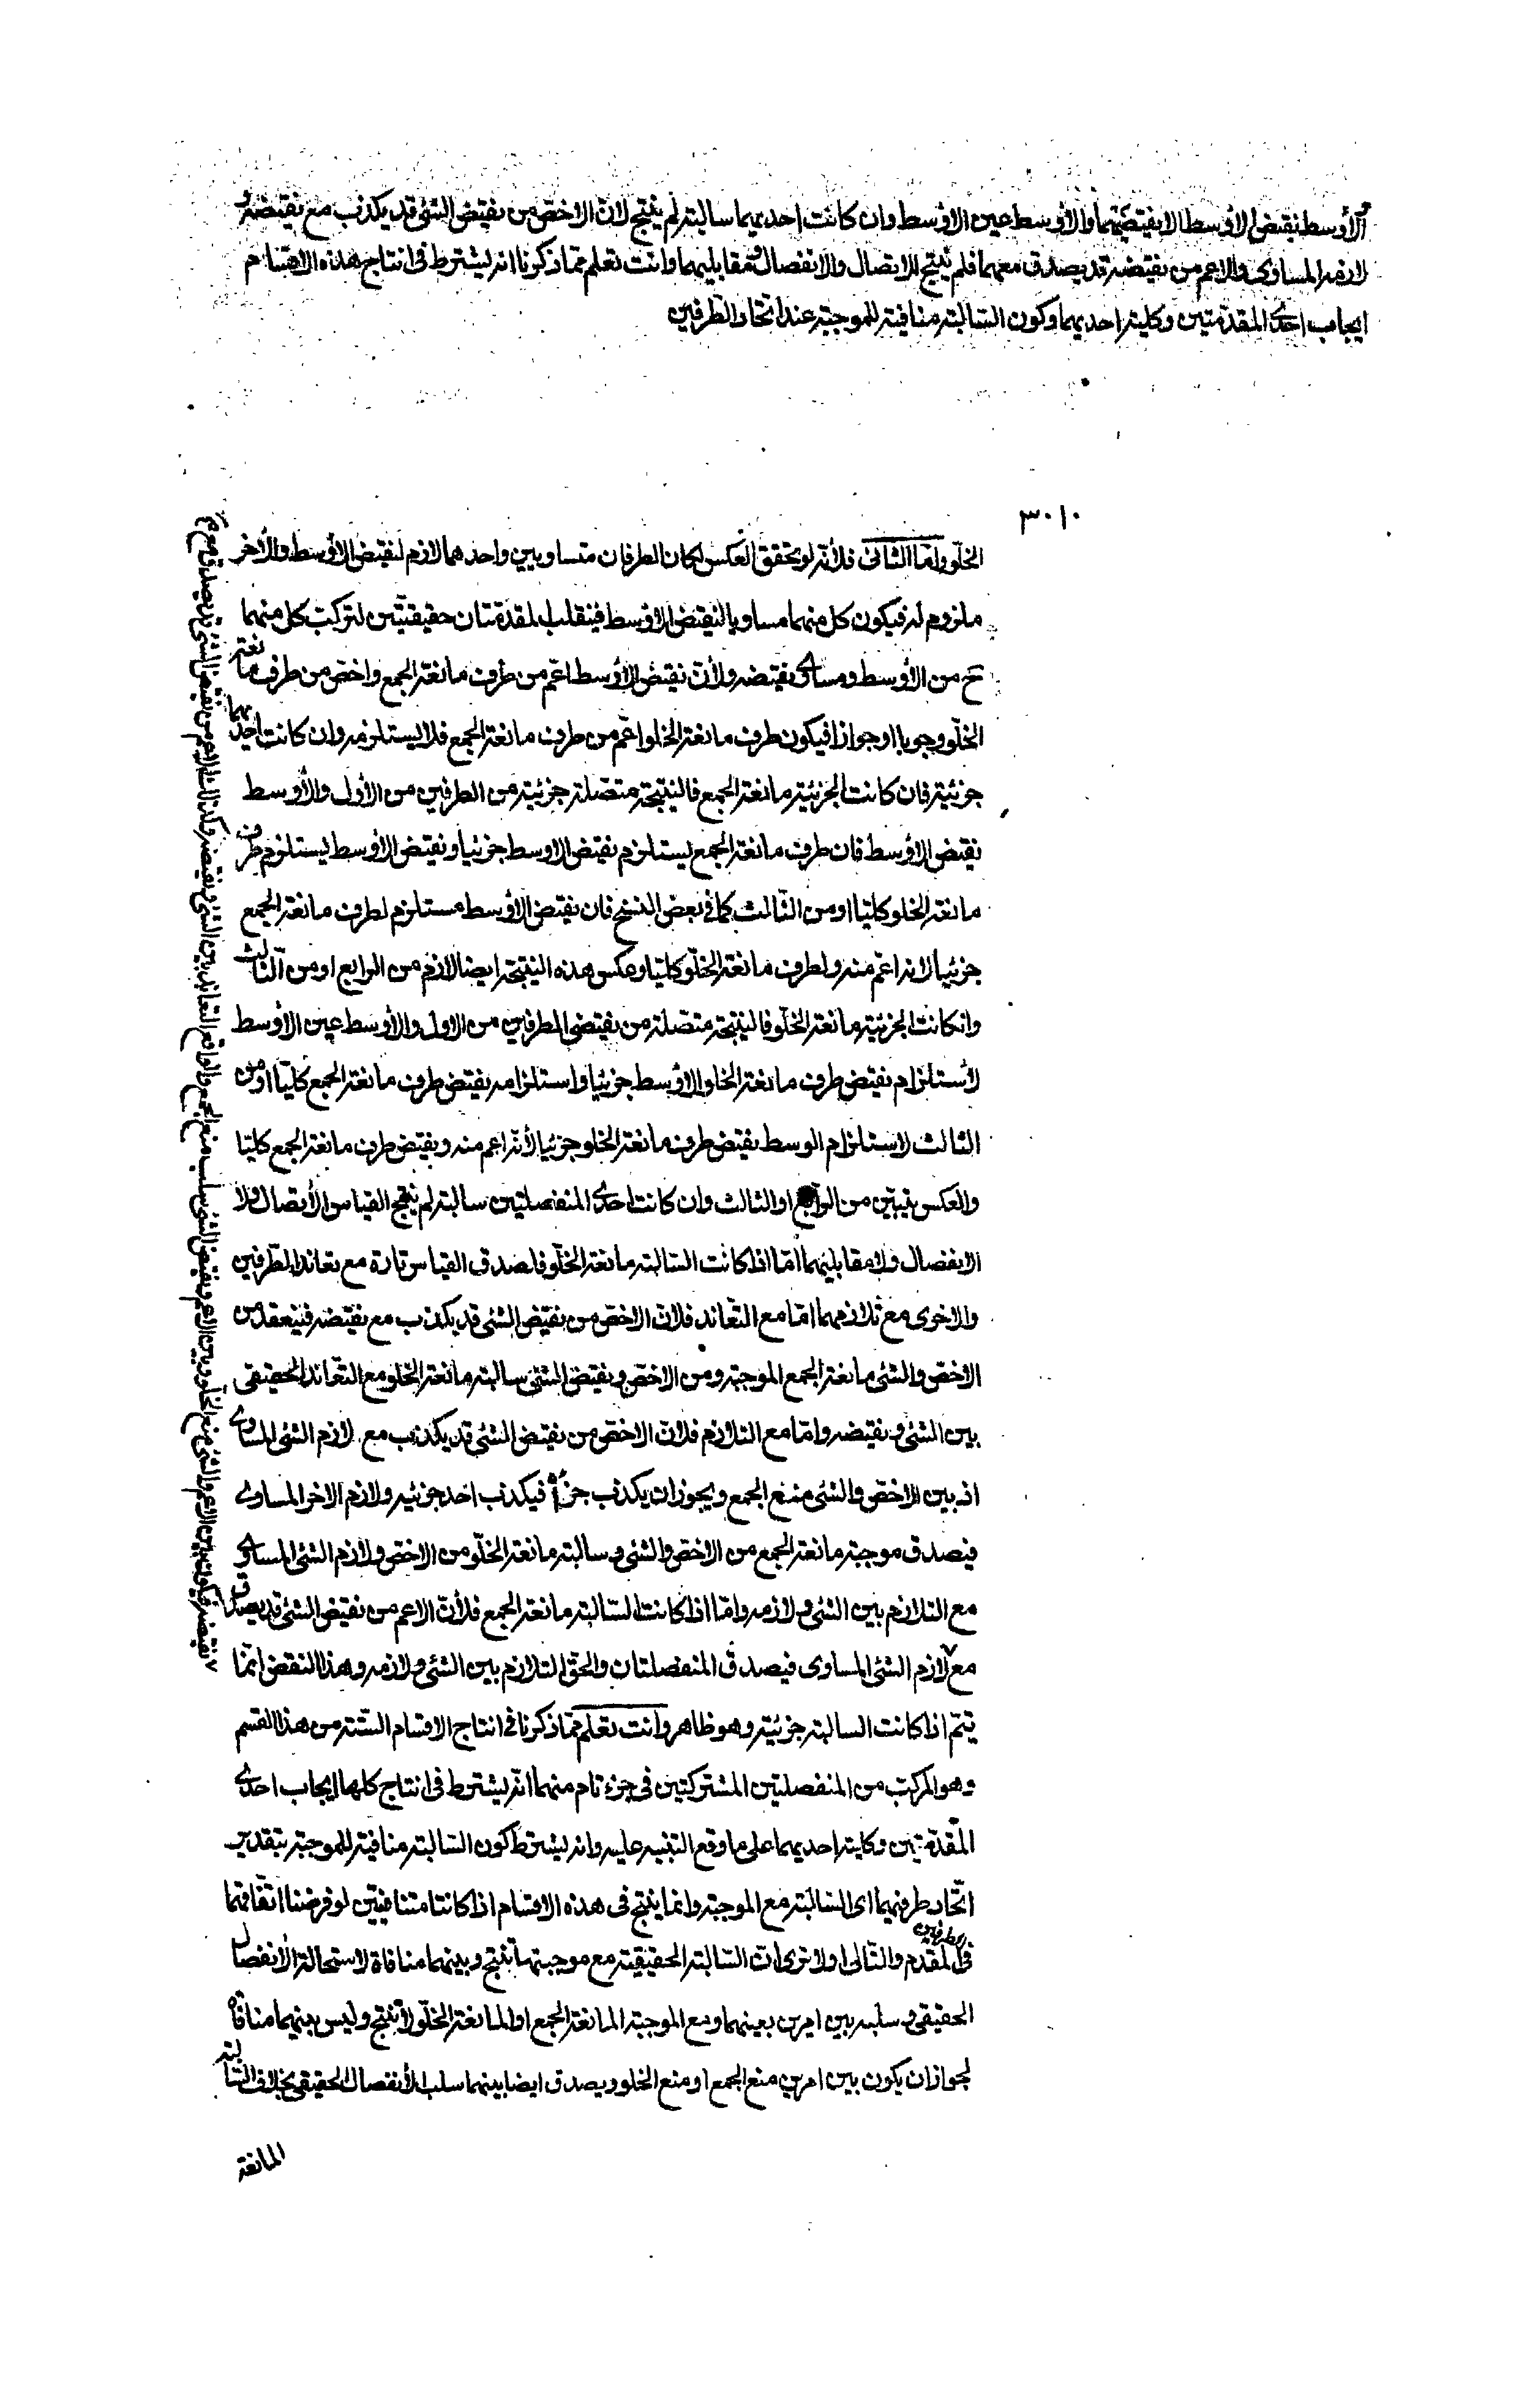 الأوسط نقيض الأوسط الا نقيضيهما والأوسط عين الاوسط وان كانت احديهما سالبة لم ينتج لان الاخص من نقيض الشئ قد يكذب مع نقيضه و
لازمه المساوى والاعم من نقيضه قد يصدق معهما فلم ينتج للاتصال والانفصال ومقابليهما وانت تعلم مما ذكرنا انه يشترط فى انتاج هذه الاقسام
ايجاب احدى المقدمتين وكلية احديهما وكون السالبة منافية للموجبة عند اتحاد الطرفين
٣٠١٠
الخلو واما الثانى فلأنه لو تحقق العكس لكان الطرفان متساويين واحدهما لازم لنقيض الاوسط والأخر
ملزوم له فيكون كل منهما مساويا لنقيض الاوسط فينقلب المقدمتان حقيقيتين لتركب كل منهما
ح من الأوسط ومساوى نقيضه ولأن نقيض الاوسط اعم من طرف مانعة الجمع واخص من طرف مانعة
الخلو وجوبا او جوازا فيكون طرف مانعة الخلو اعم من طرف مانعة الجمع فلا يستلزمه وان كانت احديهما
جزئية فان كانت الجزئية مانعة الجمع فالنتيجة متصلة جزئية من الطرفين من الأول والأوسط
نقيض الاوسط فان طرف مانعة الجمع يستلزم نقيض الاوسط جزئيا ونقيض الأوسط يستلزم طرف
مانعة الخلو كليا او من الثالث كما فى بعض النسخ فان نقيض الاوسط مستلزم لطرف مانعة الجمع
جزئيا لانه اعم منه ولطرف مانعة الخلو كليا وعكس هذه النتيجة ايضا لازم من الرابع او من الثالث
وانكانت الجزئية مانعة الخلو فالنتيجة متصلة من نقيضى الطرفين من الاول والأوسط عين الاوسط
لأستلزام نقيض طرف مانعة الخلو الاوسط جزئيا واستلزامه نقيض طرف مانعة الجمع كليا او من
الثالث لاستلزام الوسط نقيض طرف مانعة الخلو جزئيا لأنه اعم منه ونقيض طرف مانعة الجمع كليا
والعكس يتبين من الرابع او الثالث وان كانت احدى المنفصلتين سالبة لم ينتج القياس الأتصال ولا
الانفصال ولا مقابليهما اما اذا كانت السالبة مانعة الخلو فلصدق القياس تارة مع تعاند الطرفين
والاخرى مع تلازمهما اما مع التعاند فلان الاخص من نقيض الشئ قد يكذب مع نقيضه فينعقد من
الاخص والشئ مانعة الجمع الموجبة ومن الاخص ونقيض الشئ سالبة مانعة الخلو مع التعاند الحقيقى
بين الشئ ونقيضه واما مع التلازم فلان الاخص من نقيض الشئ قد يكذب مع لازم الشئ المساوى
اذ بين الاخص والشئ منع الجمع ويجوز ان يكذب جزءاه فيكذب احد جزئيه ولازم الاخر المساوى
فيصدق موجبة مانعة الجمع من الاخص والشئ وسالبة مانعة الخلو من الاخص ولازم الشئ المساوى
مع التلازم بين الشئ ولازمه واما اذا كانت السالبة مانعة الجمع فلأن الاعم من نقيض الشئ قد يصدق
مع لازم الشئ المساوى فيصدق المنفصلتان والحق التلازم بين الشئ ولازمه وهذا النقض انما
يتم اذا كانت السالبة جزئية وهو ظاهر وانت تعلم مما ذكرنا فى انتاج الاقسام الستة من هذا القسم
وهو المركب من المنفصلتين المشتركتين فى جزء تام منهما انه يشترط فى انتاج كلها ايجاب احدى
المقدمتين وكلية احديهما على ما وقع التنبيه عليه وانه يشترط كون السالبة منافية للموجبة بتقدير
اتحاد طرفيهما اى السالبة مع الموجبة وانما ينتج فى هذه الاقسام اذا كانتا متنافيتين لو فرضنا اتفاقهما
فى المقدم والتالى اولا ترى ان السالبة الحقيقية مع موجبتها تنتج وبينهما منافاة لاستحالة الأنفصال
الحقيقى وسلبه بين امرين بعينهما ومع الموجبة المانعة الجمع او المانعة الخلو لا تنتج وليس بينهما منافاة
لجواز ان يكون بين امرين منع الجمع او منع الخلو ويصدق ايضا بينهما سلب الأنفصال الحقيقى بخلاف السالبة
المانعة